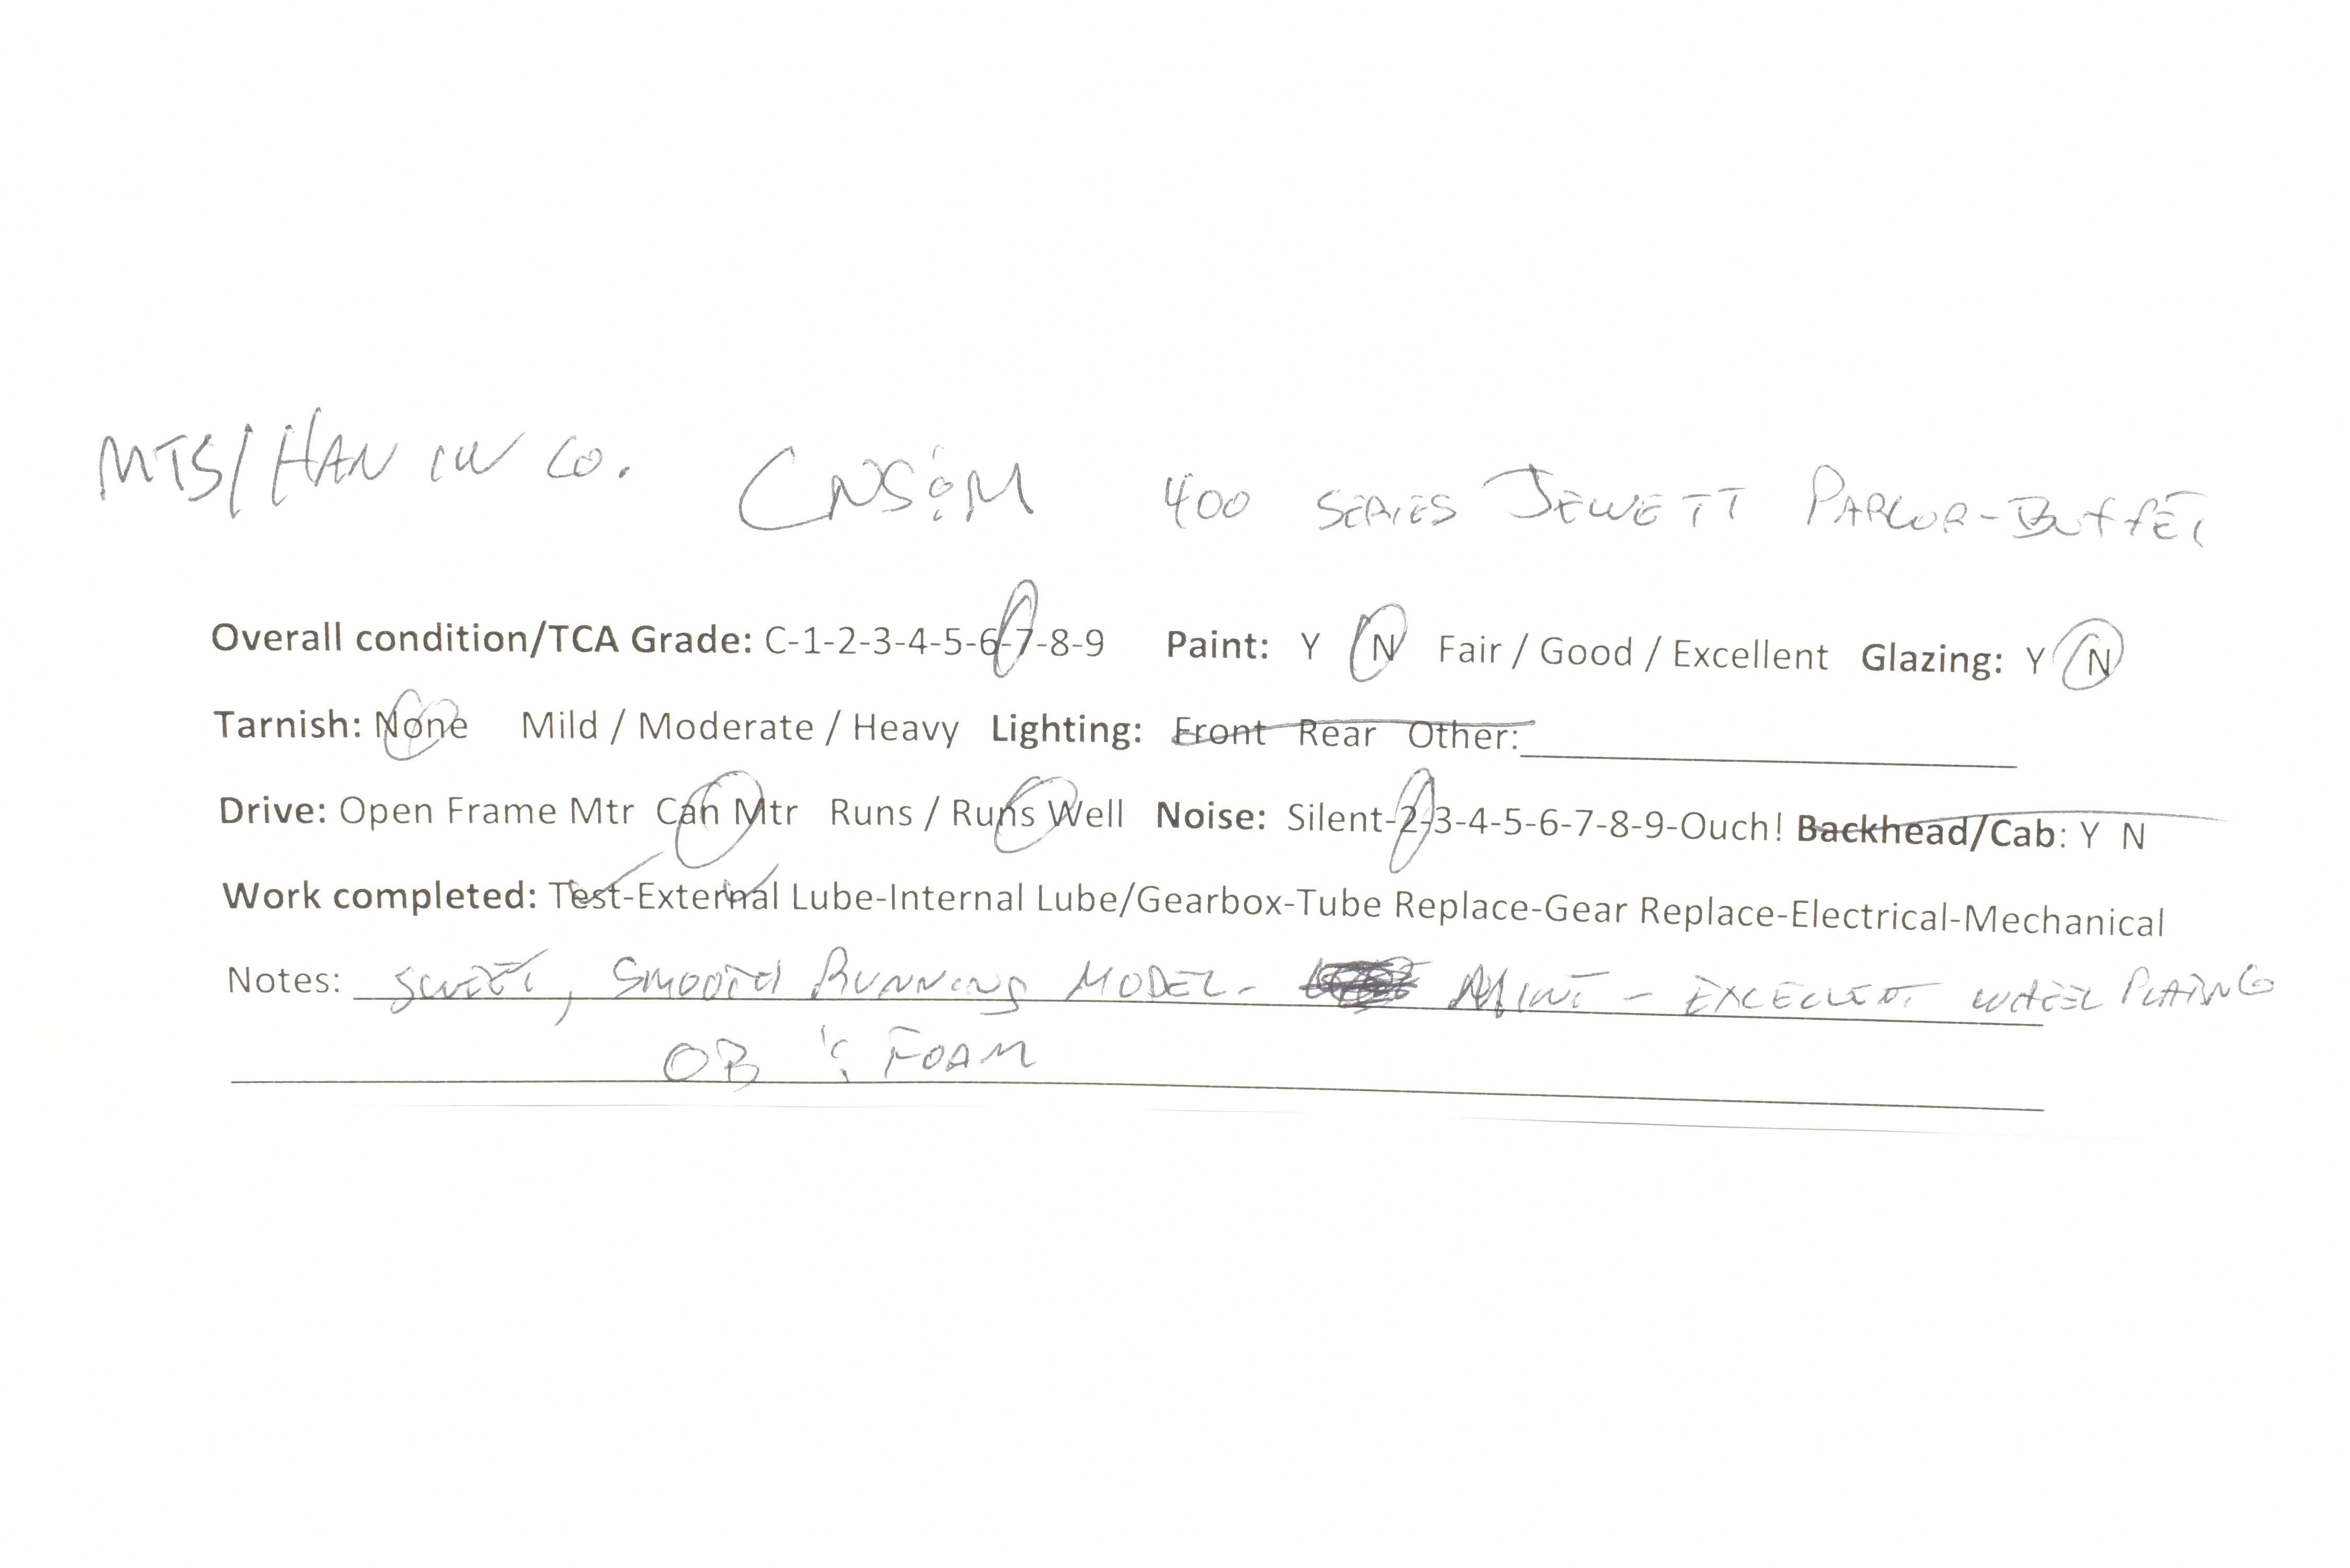 MTS/HAN IW CO. CNS&M 400 SERIES JEWETT PARLOR-BUFFET
Overall condition/TCA Grade: C-1-2-3-4-5-6-7-8-9 Paint: Y N Fair / Good / Excellent Glazing: Y N
Tarnish: None Mild / Moderate / Heavy Lighting: Front Rear Other:
Drive: Open Frame Mtr Can Mtr Runs / Runs Well Noise: Silent-2-3-4-5-6-7-8-9-Ouch! Backhead/Cab: Y N
Work completed: Test-External Lube-Internal Lube/Gearbox-Tube Replace-Gear Replace-Electrical-Mechanical
Notes: SWEET, SMOOTH RUNNING MODEL. MINT - EXCELLENT WHEEL PLATING
OB & FOAM